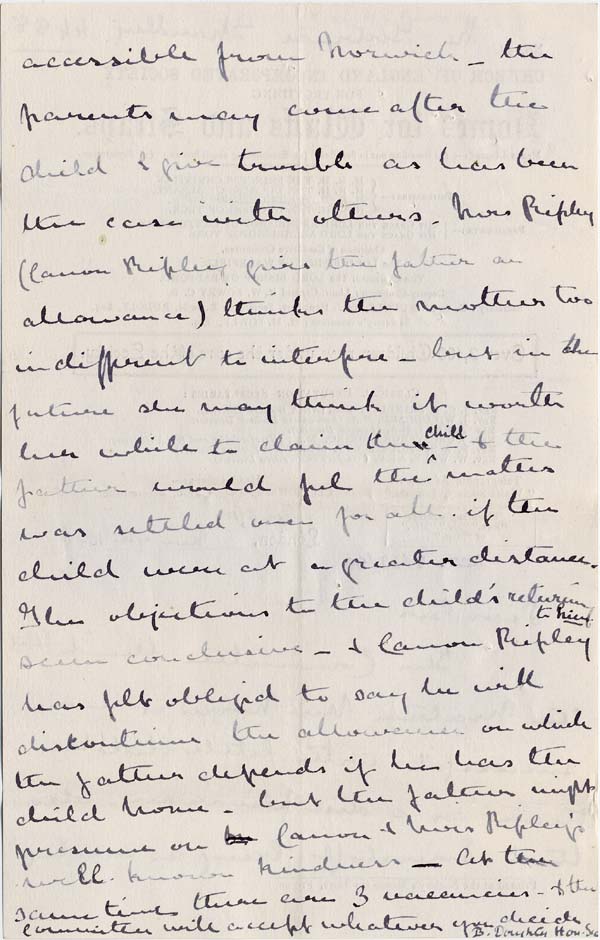 accessible from Norwich - the
parents may come after the
child & give trouble as has been
the case with others. Mrs Ripley
(Canon Ripley gives the father an
allowance) thinks the mother too
indifferent to interfere - but in the
future she may think it worth
her while to claim the child & the
father would feel the matter
was settled once for all if the
child were at a greater distance.
The objections to the child's return to him
seem conclusive - & Canon Ripley
has felt obliged to say he will
discontinue the allowance on which
the father depends if he has the
child home - but the father might
presume on Canon & Mrs Ripley's
well known kindness - At the
same time there are 3 vacancies - & the
committee will accept whatever you decide
B. Hon. Sec